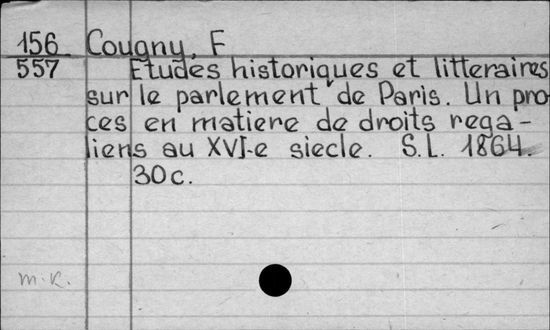 156 Cougny, F
557 Etudes historiques et litteraires
sur le parlement de Paris. Un pro
ces en matiere de droits rega-
liens au XVI-e siecle. S.L. 1864.
30c.
m.k.